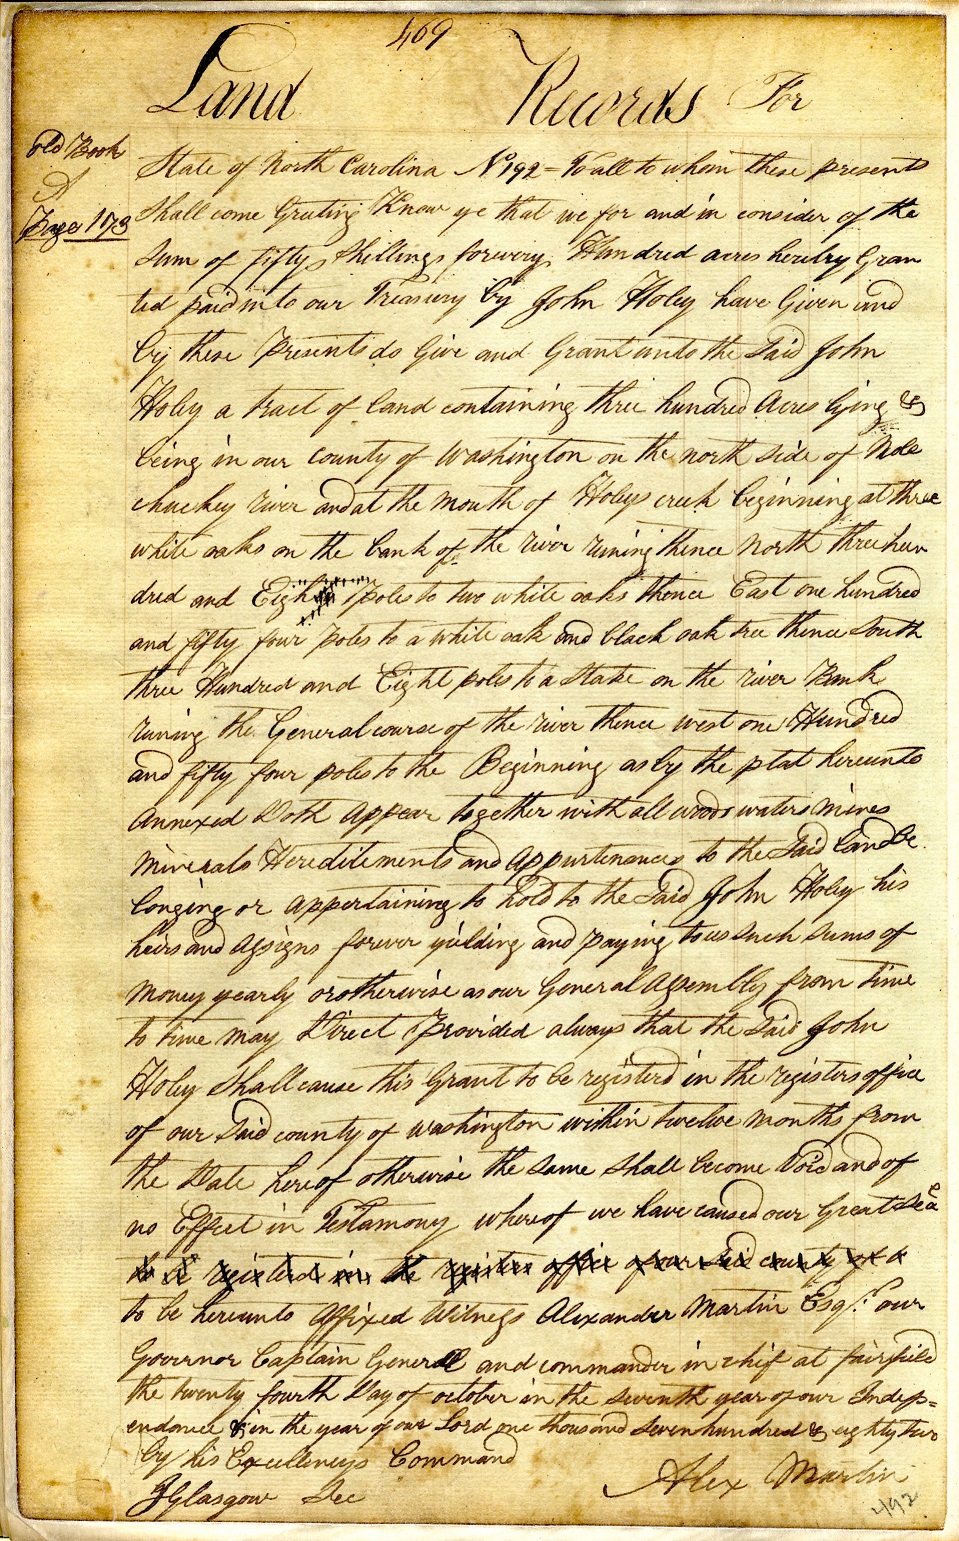 469
Land Records For
old Book
A
Page 173
State of North Carolina No 192 = To all to whom these presents
Shall come Gruting Know ye that we for and in consider of the
Sum of fifty Shillings forevery Hundred acres hereby Gran
ted paid into our Treasury by John Holey have Given and
by these Presents do Give and Grant unto the Said John
Holey a tract of land containing three hundred Acres lying &
being in our county of Washington on the north side of Nole
chuckey river and at the mouth of Holeys creek beginning at three
white oaks on the bank of the river runing thence North three hun
dred and Eight poles to two white oaks thence East one hundred
and fifty four poles to a white oak and black oak tree thence South
three Hundred and Eight poles to a Stake on the river Bank
runing the General course of the river thence west one Hundred
and fifty four poles to the Beginning as by the plat hereunto
Annexed Doth Appear together with all woods waters Mines
Minerals Hereditements and Appurtenances to the Said land be
longing or Appertaining to hold to the Said John Holey his
heirs and Assigns forever yielding and paying to us Such Sums of
Money yearly or otherwise as our General Assembly from time
to time may Direct Provided always that the Said John
Holey Shall cause this Grant to be registerd in the registers office
of our Said county of washington within twelve Months from
the Date hereof otherwise the Same Shall become Void and of
no Effect in Testamony whereof we have caused our Great Seal
to be registerd in the register office of our Said county of a
to be hereunto Affixed Witness Alexander Martin Esqr. our
Governor Captain General and commander in chif at fairfield
the twenty fourth Day of october in the Seventh year of our Indep=
endance & in the year of our Lord one thousand Seven hundred & eighty two
by his Excellencys Command
Alex Martin
J Glasgow Sec
492